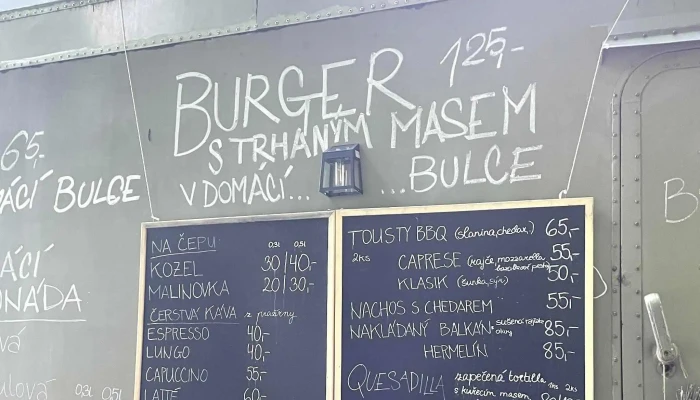 BURGER 125,-
S TRHANÝM MASEM
V DOMÁCÍ... ...BULCE
65,-
BULCE
NA ČEPU 0,3l 0,5l
KOZEL 30 40,-
MALINOVKA 20 30,-
ČERSTVÁ KÁVA z pražírny
ESPRESSO 40,-
LUNGO 40,-
CAPUCCINO 55,-
LATTE 60,-
TOUSTY BBQ (slanina, chedar,) 65,-
2ks CAPRESE (rajče, mozzarella, bazalkové pesto) 55,-
KLASIK (šunka, sýr) 50,-
NACHOS S CHEDAREM 55,-
NAKLÁDANÝ BALKÁN sušená rajčata olivy 85,-
HERMELÍN 85,-
QUESADILLA zapečená tortilla 1ks 2ks
s kuřecím masem
0,3l 0,5l